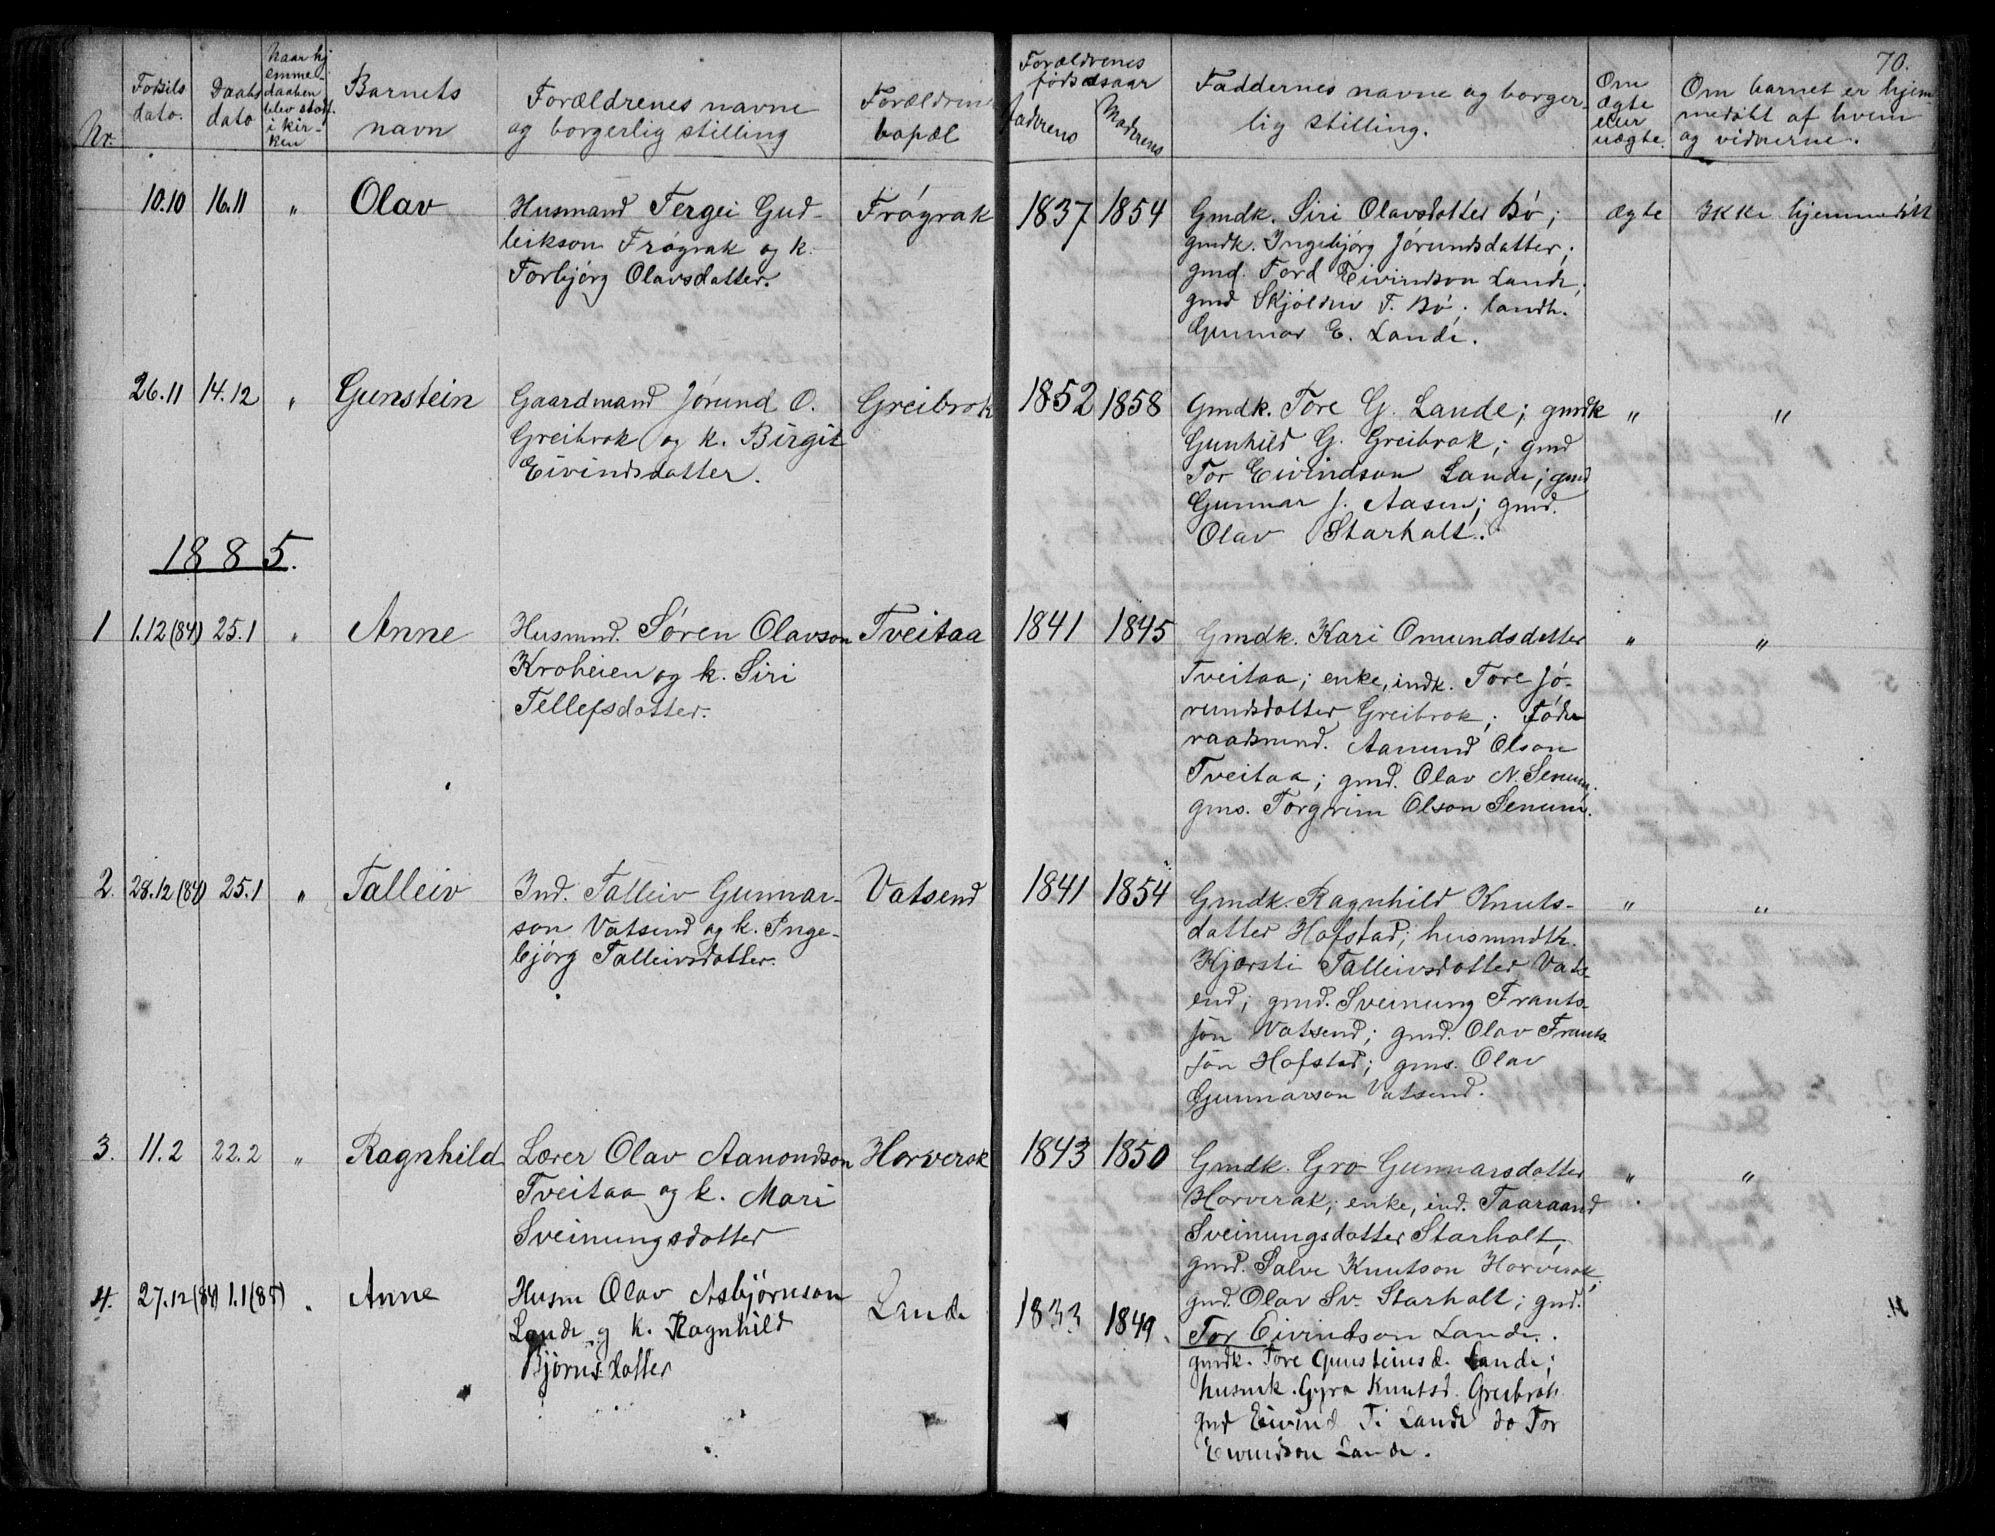 70.
Nr.
Fødsels dato.
Daabs dato
Naar hjemmedaaben blev stadf. i kirken
Barnets navn
Forældrenes navne og borgerlig stilling
Forældrenes bopæl
Forældrenes fødselsaar
Faderens
Moderens
Faddernes navne og borgerlig stilling.
Om ægte eller uægte.
Om barnet er hjemmedøbt af hvem og vidnerne.
10.10 16.11 " Olav
Husmand Tergei Gud-
leikson Frøgrak og k.
Torbjørg Olavsdatter.
Frøgrak
1837 1854
Gmdk. Siri Olavsdatter Bø;
gmdk. Ingebjørg Jørundsdatter;
gmd. Tord Eivindson Lande;
gmd Skjøldu T. Bø; landh.
Gunnar E. Lande.
ægte
Ikke hjemmedøbt
26.11 14.12 " Gunstein
Gaardmand Jørund O.
Greibrok og k. Birgit
Eivindsdatter.
Greibrok
1852 1858
Gmdk. Tore G. Lande; gmdk
Gunhild G. Greibrok; gmd
Tor Eivindson Lande; gmd
Gunnar J. Aasen; gmd.
Olav Starholt.
" "
1885.
1 1.12 (84) 25.1 " Anne
Husmnd. Søren Olavson
Kroheien og k. Siri
Tellefsdatter.
Tveitaa
1841 1845
Gmdk. Kari Omundsdatter
Tveitaa; enke, indk. Tore Jø-
rundsdatter Greibrok; føde
raadsmnd. Aamund Olson
Tveitaa; gmd. Olav N. Senum.
gms. Torgrim Olson Senum.
" "
2. 28.12 (84) 25.1 " Talleiv
Ind. Talleiv Gunnar-
son Vatsend og k. Inge-
bjørg Talleivsdatter.
Vatsend
1841 1854
Gmdk. Ragnhild Knuts-
datter Hofstad; husmndk.
Kjærsti Talleivsdatter Vats-
end; gmd. Sveinung Frants-
søn Vatsend; gmd. Olav Frants-
søn Hofstad; gms. Olav
Gunnarson Vatsend.
" "
3. 11.2 22.2 " Ragnhild
Lærer Olav Aamondson
Tveitaa og k. Mari
Sveinungsdatter
Horverak
1843 1850
Gmdk. Gro Gunnarsdatter
Horverak; enke, ind. Taaraand
Sveinungsdatter Starholt,
gmd. Salve Knutson Horverak;
gmd. Olav Sv. Starholt; gmd.
Tor Eivindson Lande.
" "
4. 27.12 (84) 1.1 (85) " Anne
Husm Olav Asbjørnson
Lande g k. Ragnhild
Bjørnsdatter
Lande
1833 1849.
gmdk. Tore Gunsteinsd. Lande;
husmk. Gyro Knutsd. Greibrok
gmd Eivind T. Lande do Tor
Eivindson Lande.